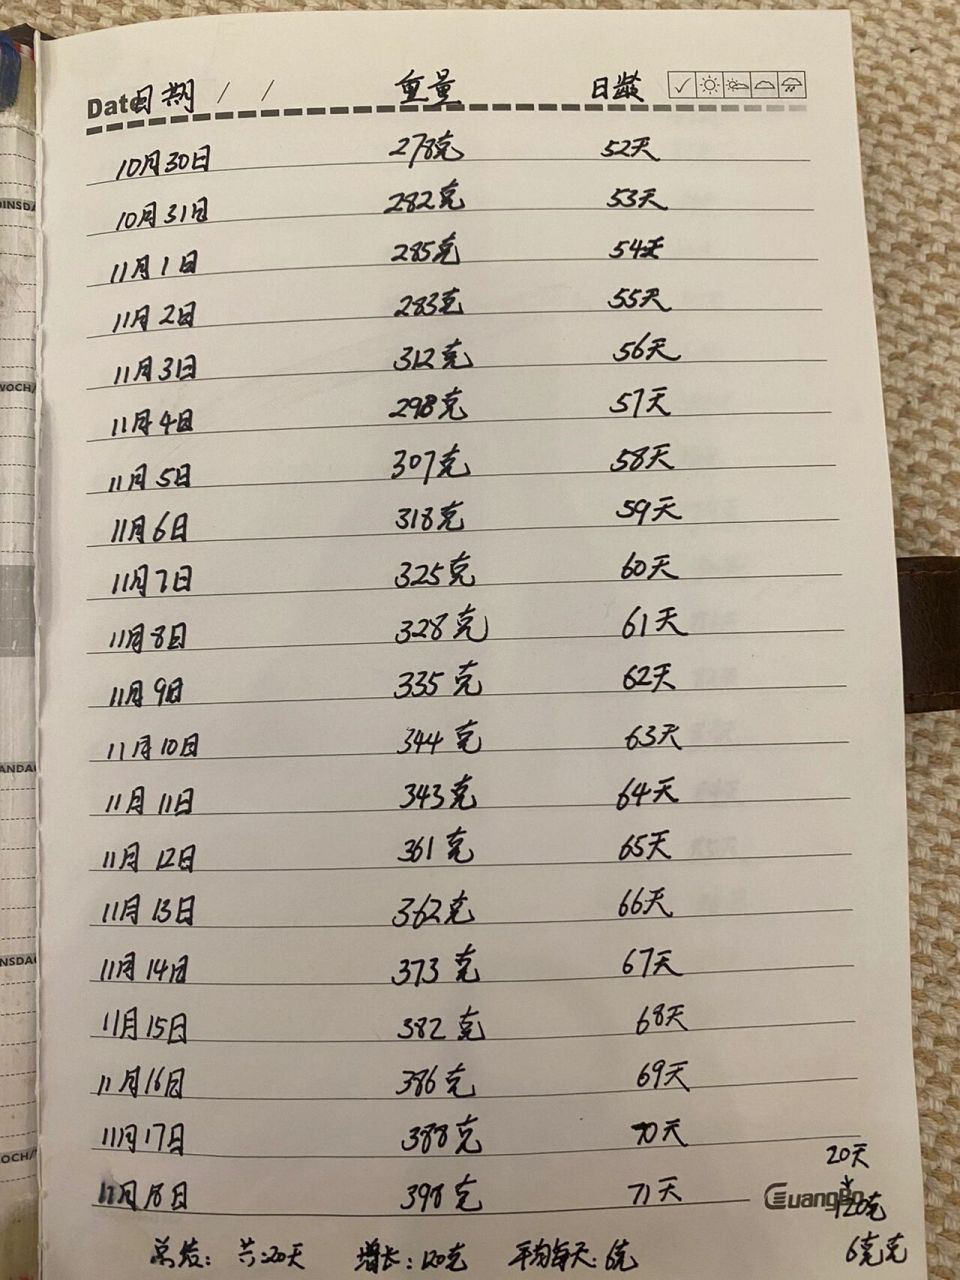 Date 日期 / / 重量 日龄
10月30日 278克 52天
10月31日 282克 53天
11月1日 285克 54天
11月2日 283克 55天
11月3日 312克 56天
11月4日 298克 57天
11月5日 307克 58天
11月6日 318克 59天
11月7日 325克 60天
11月8日 328克 61天
11月9日 335克 62天
11月10日 344克 63天
11月11日 343克 64天
11月12日 361克 65天
11月13日 362克 66天
11月14日 373克 67天
11月15日 382克 68天
11月16日 386克 69天
11月17日 388克 70天
20天
11月18日 398克 71天 GuangBo 120克
总结: 共:20天 增长:120克 平均每天:6克 6克克